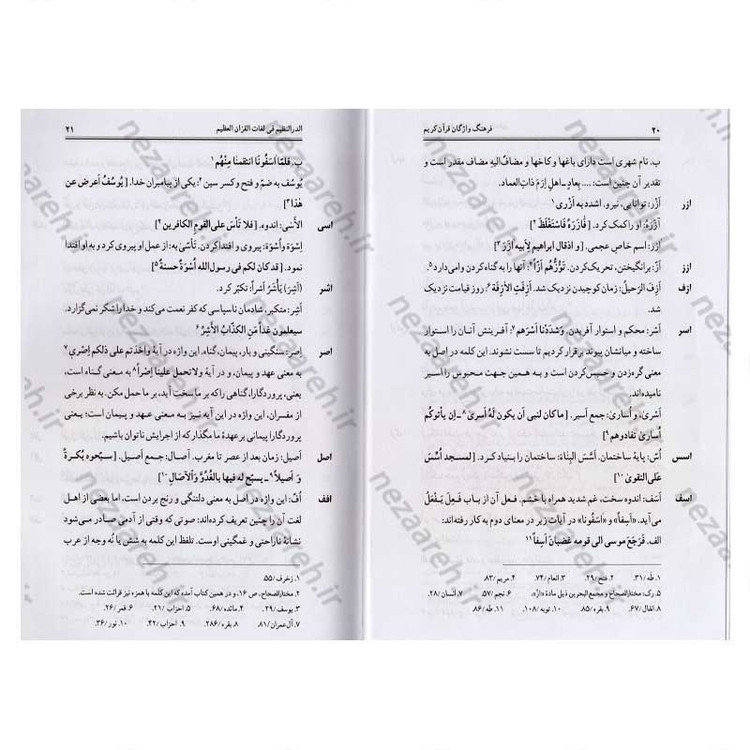 ۲۰
فرهنگ واژگان قرآن کریم
ب. نام شهری است دارای باغها و کاخها و مضاف‌الیه مضاف مقدر است و
تقدیر آن چنین است: .... بعادٍ ـ اهلِ اِرَمَ ذات‌العماد.
ازر
اَزْر: توانایی، نیرو. اشدد به اَزْری ۱
آزَرَهُ: او را کمک کرد. [ فَآزَرَهُ فَاسْتَغْلَظَ ۲]
آزر: اسم خاص عجمی. [ و اذقال ابراهیم لِاَبیه آزَرَ ۳]
ازز
اَزّ: برانگیختن، تحریک‌کردن. تَؤُزُّهُم اَزّاً ۴: آنها را به گناه کردن وامی‌دارد ۵.
ازف
اَزِفَ الرَحیلُ: زمان کوچیدن نزدیک شد. اَزِفَتِ الاَزِفَة ۶: روز قیامت نزدیک
شد.
اسر
اَسْر: محکم و استوار آفریدن. وَشَدَدْنا اَسْرَهُم ۷: آفرینش آنان را استوار
ساخته و میانشان پیوند برقرار کردیم تا سست نشوند. این کلمه در اصل به
معنی گره‌زدن و حبس‌کردن است و به همین جهت محبوس را اسیر
نامیده‌اند.
اَسْریٰ، و اُساریٰ: جمع اسیر. [ ما کان لنبی اَن یکونَ لَهُ اَسریٰ ۸ ـ اِن یأتوکُم
اُساریٰ تفادوهم ۹]
اسس
اُسّ: پایهٔ ساختمان. اَسَّسَ البِناءَ: ساختمان را بنیاد کرد. [لمسجد اُسِّسَ
عَلَی التقویٰ ۱۰]
اسف
اَسَف: اندوه سخت، غم شدید همراه با خشم. فعل آن از باب فَعِلَ یَفْعَلُ
می‌آید. «اَسِفاً» و «آسَفُونا» در آیات زیر در معنای دوم به کار رفته‌اند:
الف. فَرَجَعَ موسی الی قومه غَضبانَ اَسِفاً ۱۱
۱. طه /۳۱. ۲. فتح /۲۹. ۳. انعام /۷۴. ۴. مریم /۸۳
۵. رک: مختارالصحاح و مجمع البحرین ذیل مادهٔ «ازز». ۶. نجم /۵۷ ۷. انسان /۲۸.
۸. انفال /۶۷. ۹. بقره /۸۵. ۱۰. توبه /۱۰۸. ۱۱. طه /۸۶
الدرالنظیم فی لغات القرآن العظیم
۲۱
ب. فلمّا آسَفُونَا انتَقَمنا مِنْهُم ۱
یُوسُف به ضمّ و فتح و کسر سین ۲: یکی از پیامبران خدا. [ یُوسُفُ اَعرِض عن
هٰذا ۳]
اسی
الأَسیٰ: اندوه. [ فلا تأسَ علی القوم الکافرین ۴]
اِسْوَة وأُسْوَة: پیروی و اقتدا کردن. تَأَسّیٰ به: از عمل او پیروی کرد و به او اقتدا
نمود. [ قد کان لکم فی رسول الله أُسْوَةٌ حسنةٌ ۵]
اشر
(اَشِرَ) یَأْشَرُ أَشَراً: تکبّر کرد.
اَشِر: متکبر، شادمان ناسپاسی که کفر نعمت می‌کند و خدا را شکر نمی‌گزارد.
سیعلمون غداً مَنِ الکَذّابُ الأَشِر ۶
اصر
اِصر: سنگینی و بار، پیمان، گناه. این واژه در آیهٔ واخذتم علی ذلکم اِصری ۷
به معنی عهد و پیمان، و در آیهٔ ولاتحمل علینا اِصراً ۸ به معنی گناه است،
یعنی، پروردگارا، گناهی را که بر ما سخت آید، بر ما حمل مکن. به نظر برخی
از مفسران، این واژه در این آیه نیز به معنی عهد و پیمان است؛ یعنی
پروردگارا پیمانی بر عهدهٔ ما مگذار که از اجرایش ناتوان باشیم.
اصل
اَصیل: زمان بعد از عصر تا مغرب. آصال: جمع اَصیل. [ سبّحوه بُکرةً
وَ اَصیلاً ۹ ـ یسبّح له فیها بالغُدُوِّ وَالآصال ۱۰]
افف
اُفّ: این واژه در اصل به معنی دلتنگی و رنج بردن است، اما بعضی از اهل
لغت آن را چنین تعریف کرده‌اند: صوتی که وقتی از آدمی صادر می‌شود
نشانهٔ ناراحتی و غمگینی اوست. تلفظ این کلمه به شش یا نُه وجه از عرب
۱. زخرف /۵۵.
۲. مختارالصحاح، ص ۱۶، و در همین کتاب آمده که این کلمه با همزه نیز قرائت شده است.
۳. یوسف /۲۹. ۴. مائده /۶۸. ۵. احزاب /۲۱. ۶. قمر /۲۶.
۷. آل‌عمران /۸۱. ۸. بقره /۲۸۶. ۹. احزاب /۴۲. ۱۰. نور /۳۶.
nezaareh.ir